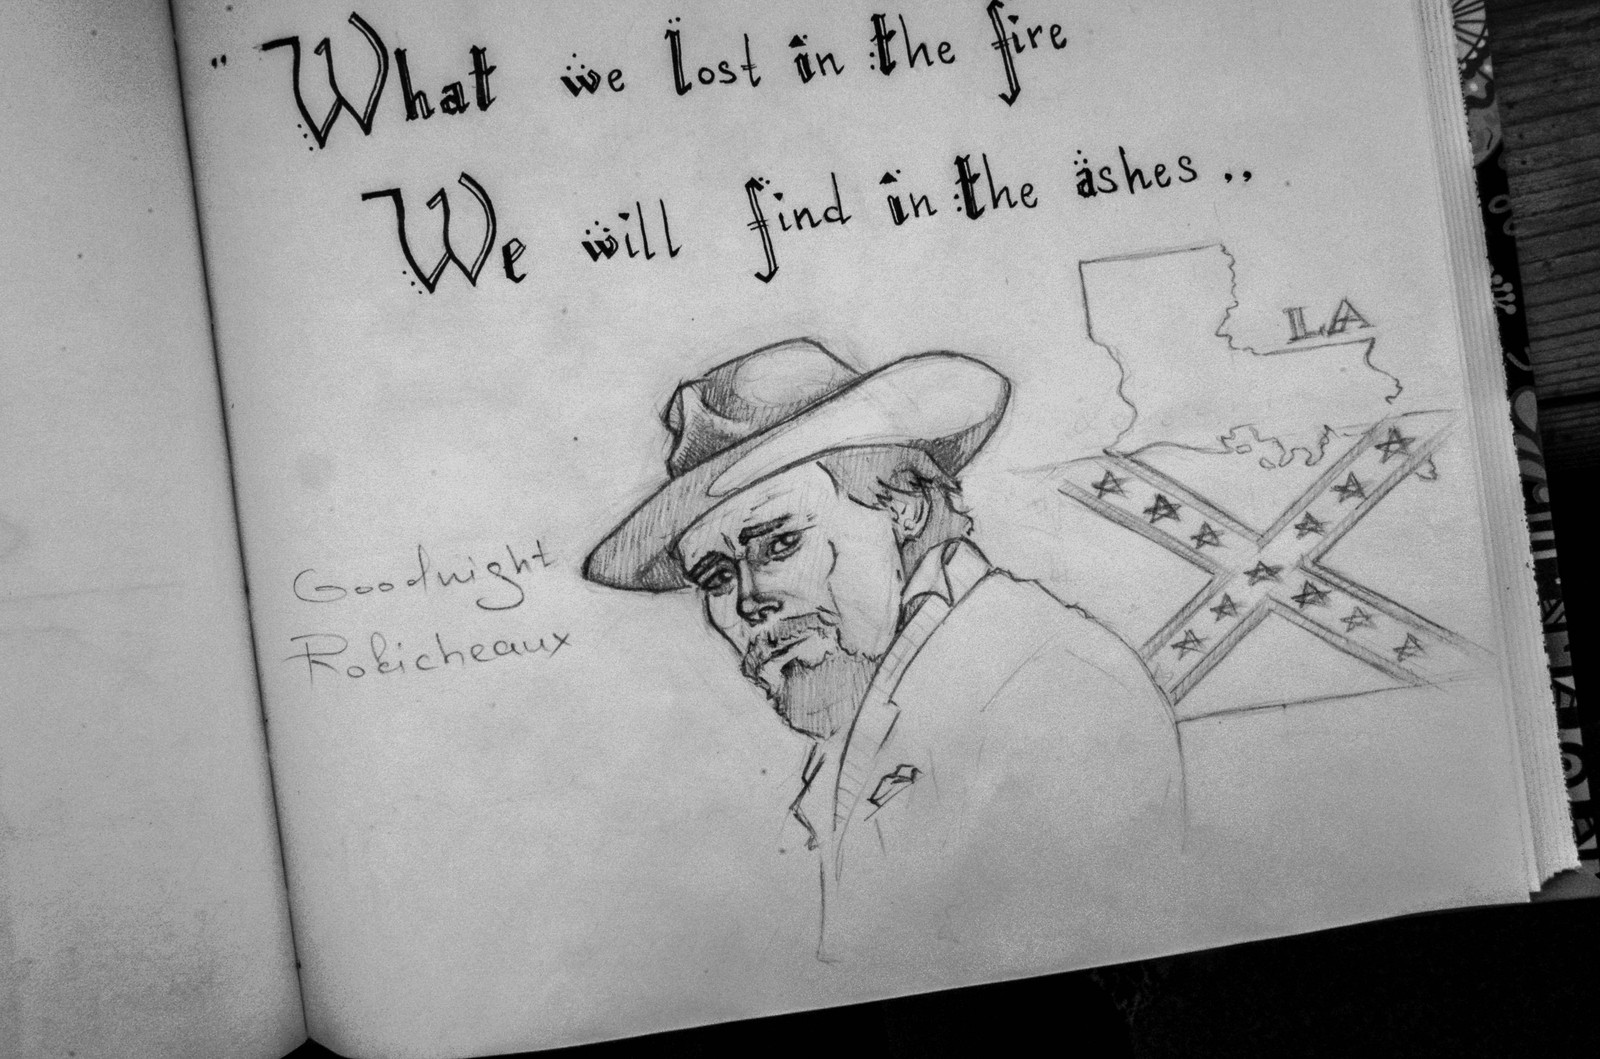 " What we lost in the fire
We will find in the ashes..
LA
Goodnight
Robicheaux